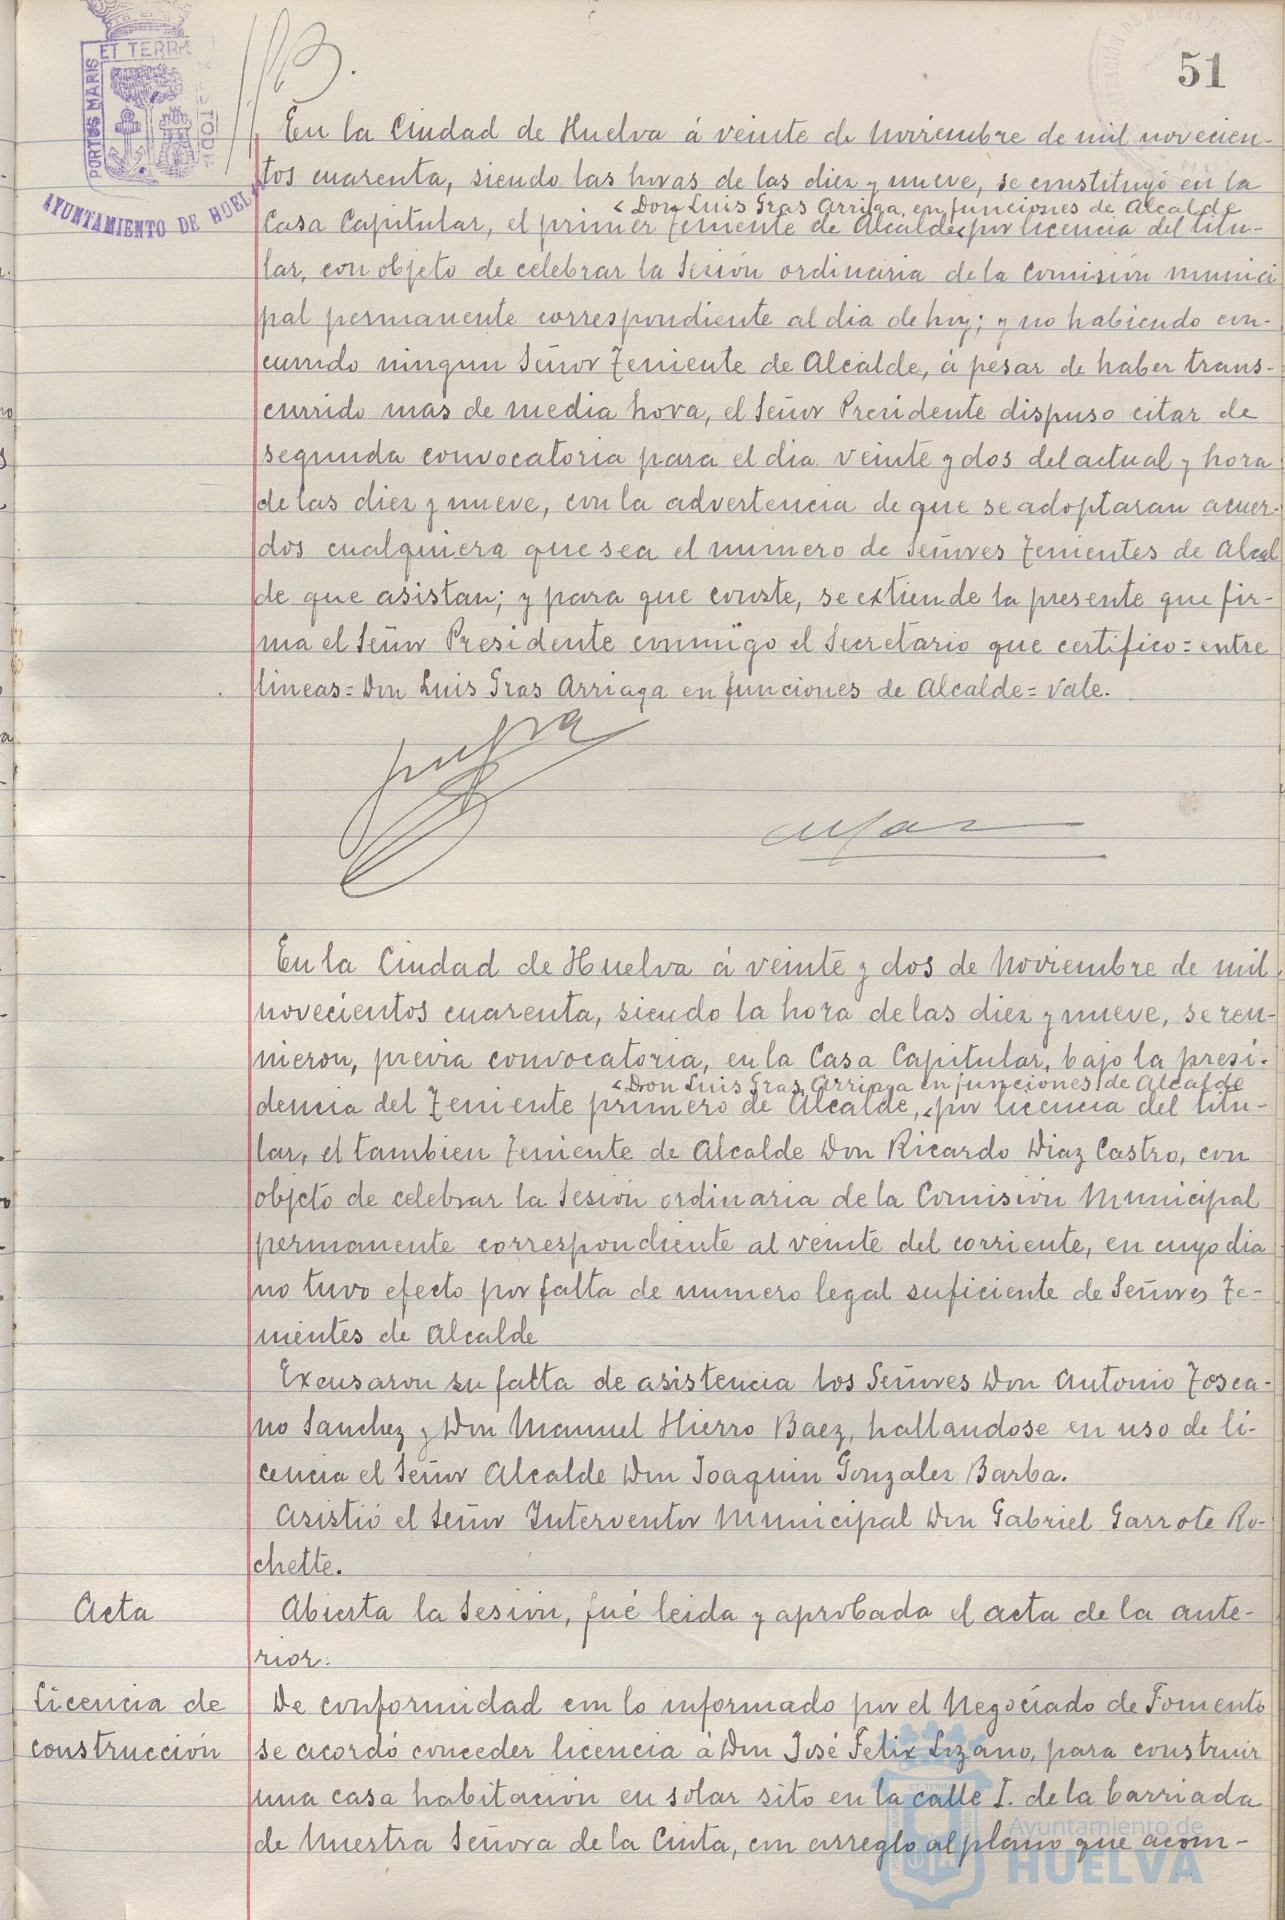 ET TERRA
PORTUS MARIS
CUSTODIA
AYUNTAMIENTO DE HUELVA
51
En la Ciudad de Huelva á veinte de noviembre de mil novecien-
tos cuarenta, siendo las horas de las diez y nueve, se constituyó en la
Don Luis Gras Arriaga en funciones de Alcalde
Casa Capitular, el primer Teniente de Alcalde por licencia del titu-
lar, con objeto de celebrar la Sesión ordinaria de la Comisión munici
pal permanente correspondiente al dia de hoy; y no habiendo con-
currido ningun Señor Teniente de Alcalde, á pesar de haber trans-
currido mas de media hora, el Señor Presidente dispuso citar de
segunda convocatoria para el dia veinte y dos del actual y hora
de las diez y nueve, con la advertencia de que se adoptaran acuer-
dos cualquiera que sea el numero de Señores Tenientes de Alcal
de que asistan; y para que conste, se extiende la presente que fir-
ma el Señor Presidente conmigo el Secretario que certifico = entre
lineas = Don Luis Gras Arriaga en funciones de Alcalde = vale.
En la Ciudad de Huelva á veinte y dos de Noviembre de mil
novecientos cuarenta, siendo la hora de las diez y nueve, se reu-
nieron, previa convocatoria, en la Casa Capitular, bajo la presi-
Don Luis Gras Arriaga en funciones de Alcalde
dencia del Teniente primero de Alcalde, por licencia del titu-
lar, el tambien Teniente de Alcalde Don Ricardo Diaz Castro, con
objeto de celebrar la Sesión ordinaria de la Comisión Municipal
permanente correspondiente al veinte del corriente, en cuyo dia
no tuvo efecto por falta de numero legal suficiente de Señores Te-
nientes de Alcalde
Excusaron su falta de asistencia los Señores Don Antonio Tosca-
no Sanchez y Don Manuel Hierro Baez, hallandose en uso de li-
cencia el Señor Alcalde Don Joaquin Gonzalez Barba.
Asistió el Señor Interventor Municipal Don Gabriel Garrote Ro-
chette.
Acta
Abierta la Sesión, fué leida y aprobada el acta de la ante-
rior.
Licencia de
construcción
De conformidad con lo informado por el Negociado de Fomento
se acordó conceder licencia á Don José Felix Lozano, para construir
una casa habitación en solar sito en la calle I. de la barriada
de Nuestra Señora de la Cinta, con arreglo al plano que acom-
Ayuntamiento de
HUELVA